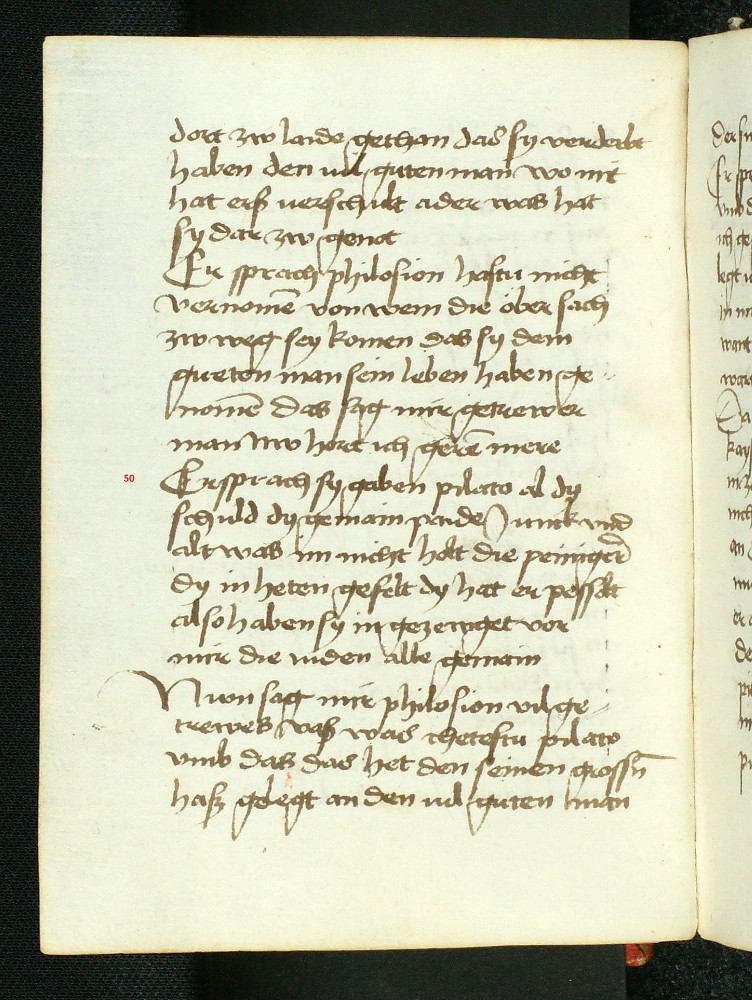 dort zw laide gethan das sy verderbt
haben den vil guten man wo mit
hat erß verschult ader was hat
sy dar zw genot
Er sprach philosion hastu nicht
vernomē von wem die ober sach
zw weg sey komen das sy dem
gueten man sein leben haben ge-
nomē das sag mir getrewer
man nw hort ich gerē mere
50 Er sprach sy gaben pilato al dy
schuld dy gemain paide Junck vnd
alt was im nicht holt die peiniger
dy in heten gefelt dy hat er pesselt
also haben sy in gezewget vor
mir die iuden alle gemain
Nwn sag mir philosion vil ge-
trewes was was thetestu pilato
vmb das das het den seinen grossn̄
haß gelegt an den vil guten man